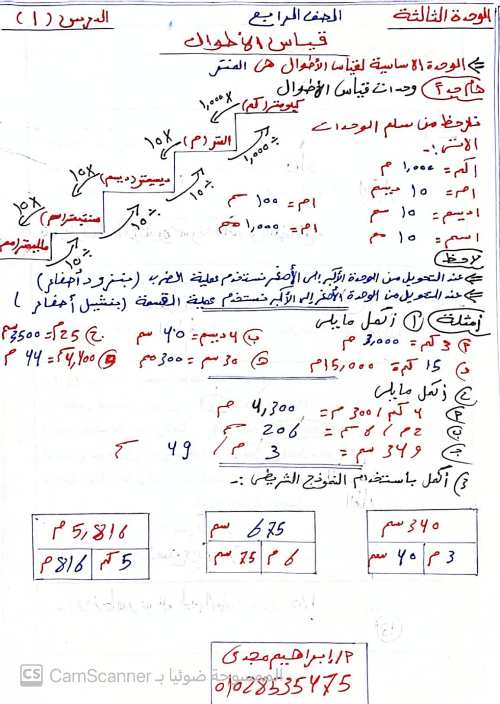 الوحدة الثالثة
الصف الرابع
الدرس (1)
قياس الأطوال
الوحدة الأساسية لقياس الأطوال هى المتر
وحدات قياس الأطوال
نلاحظ من سلم الوحدات
الآتى :-
كيلومتر (كم)
المتر (م)
ديسيمتر (ديسم)
سنتيمتر (سم)
1,000 X
10 X
10 X
10 X
1,000 ÷
10 ÷
10 ÷
10 ÷
1 كم = 1,000 م
1 م = 10 ديسم
1 م = 100 سم
1 ديسم = 10 سم
1 م = 1,000 مم
1 سم = 10 مم
لاحظ
عند التحويل من الوحدة الأكبر إلى الأصغر نستخدم عملية الضرب (بنزود أصفار)
عند التحويل من الوحدة الأصغر إلى الأكبر نستخدم عملية القسمة (بنشيل أصفار)
أمثلة 1) أكمل مايلى
3 كم = 3,000 م
ب) 4 ديسم = 40 سم
15 كم = 15,000 م
30 سم = 300 مم
4,400 سم = 44 م
2) أكمل مايلى
4 كم / 300 م = 4,300 م
2 م / 6 سم = 206 سم
349 سم = 3 م / 49 سم
3) أكمل باستخدام النموذج الشريطى :-
340 سم
3 م
40 سم
675 سم
6 م
75 سم
5,816 م
5 كم
816 م
م/ إبراهيم مجدى
01028535475
CS CamScanner الممسوحة ضوئيا بـ